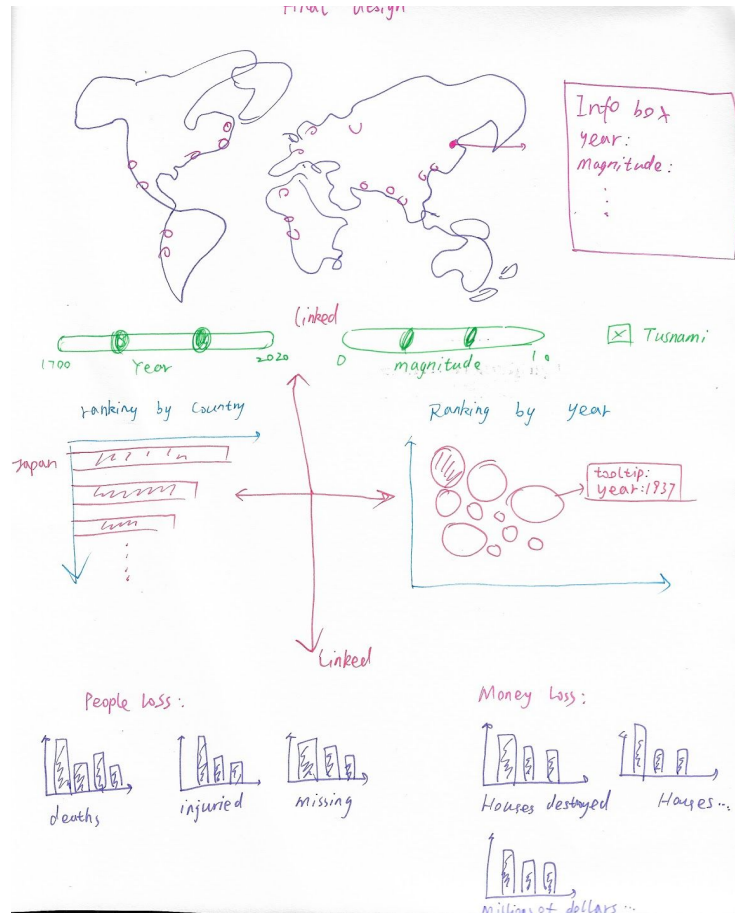 Final design
Info box
year:
magnitude:
Linked
1700
Year
2020
0
magnitude
10
Tusnami
ranking by Country
Ranking by year
Japan
tooltip:
year:1937
Linked
People Loss:
Money Loss:
deaths
injuried
missing
Houses destroyed
Houses...
Millions of dollars...